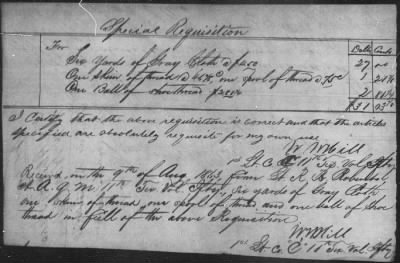 Special Requisition
For Dolls Cents
Six yards of Gray Cloth @ 4.50 27 00
One Skein of thread @ one spool of thread @ 75c 1
One Ball of shoe thread 2
$31
I Certify that the above requisition is correct and that the articles
specified are absolutely requisite for my own use
W Hill
1st Lt Co C 11th Tex Vol Infty
Received on the 9th of Aug 1863 from Lt R
A. Q. M 11th Tex Vol Infty, six yards of Gray Cloth
one skein of thread, one spool of thread and one ball of shoe
thread in full of the above Requisition
W Hill
1st Lt Co "C" 11th Tex Vol Infty